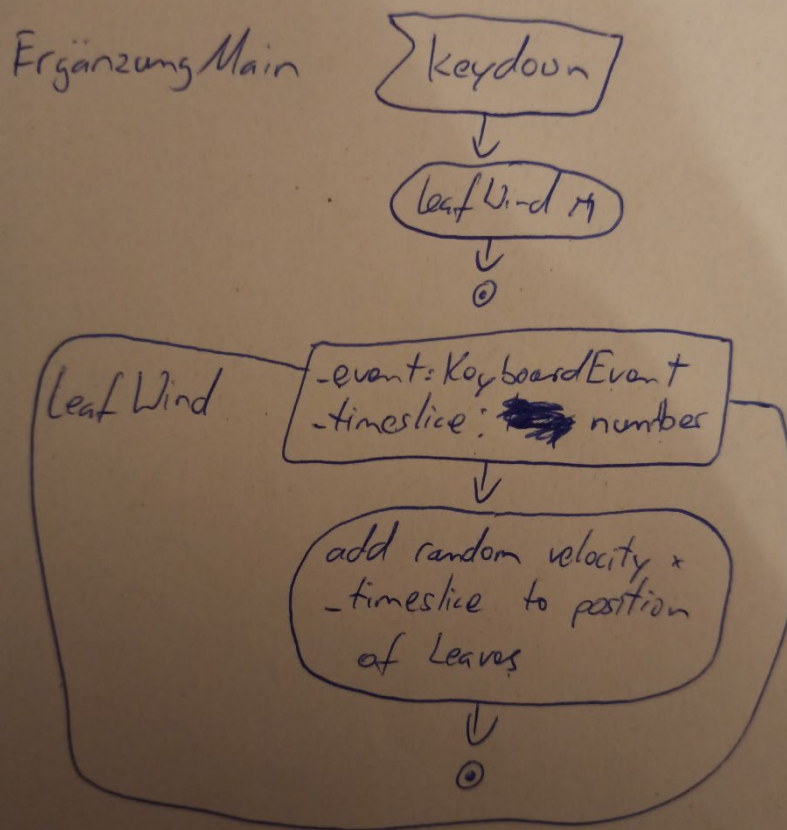 Ergänzung Main
keydown
leafWind
leafWind
_event: KeyboardEvent
_timeslice: number
add random velocity *
_timeslice to position
of Leaves